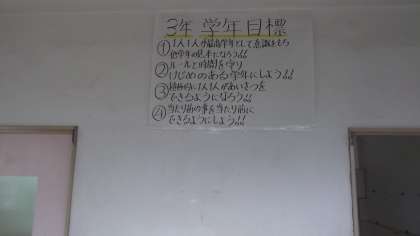 3年 学年目標
① 1人1人が最高学年として意識をもち
他学年の見本になろう!!
② ルールと時間を守り
けじめのある学年にしよう!!
③ 積極的に1人1人があいさつを
できるようになろう!!
④ 当たり前の事を当たり前に
できるようにしよう!!